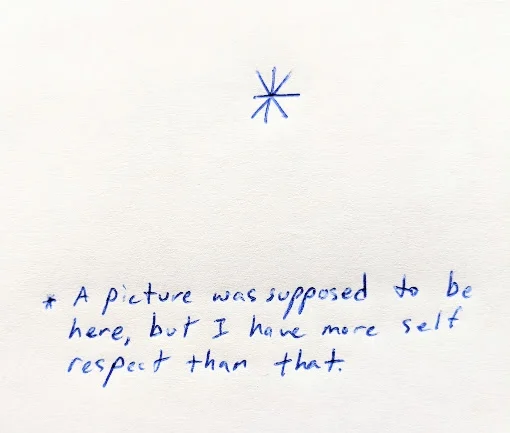 *
* A picture was supposed to be
here, but I have more self
respect than that.